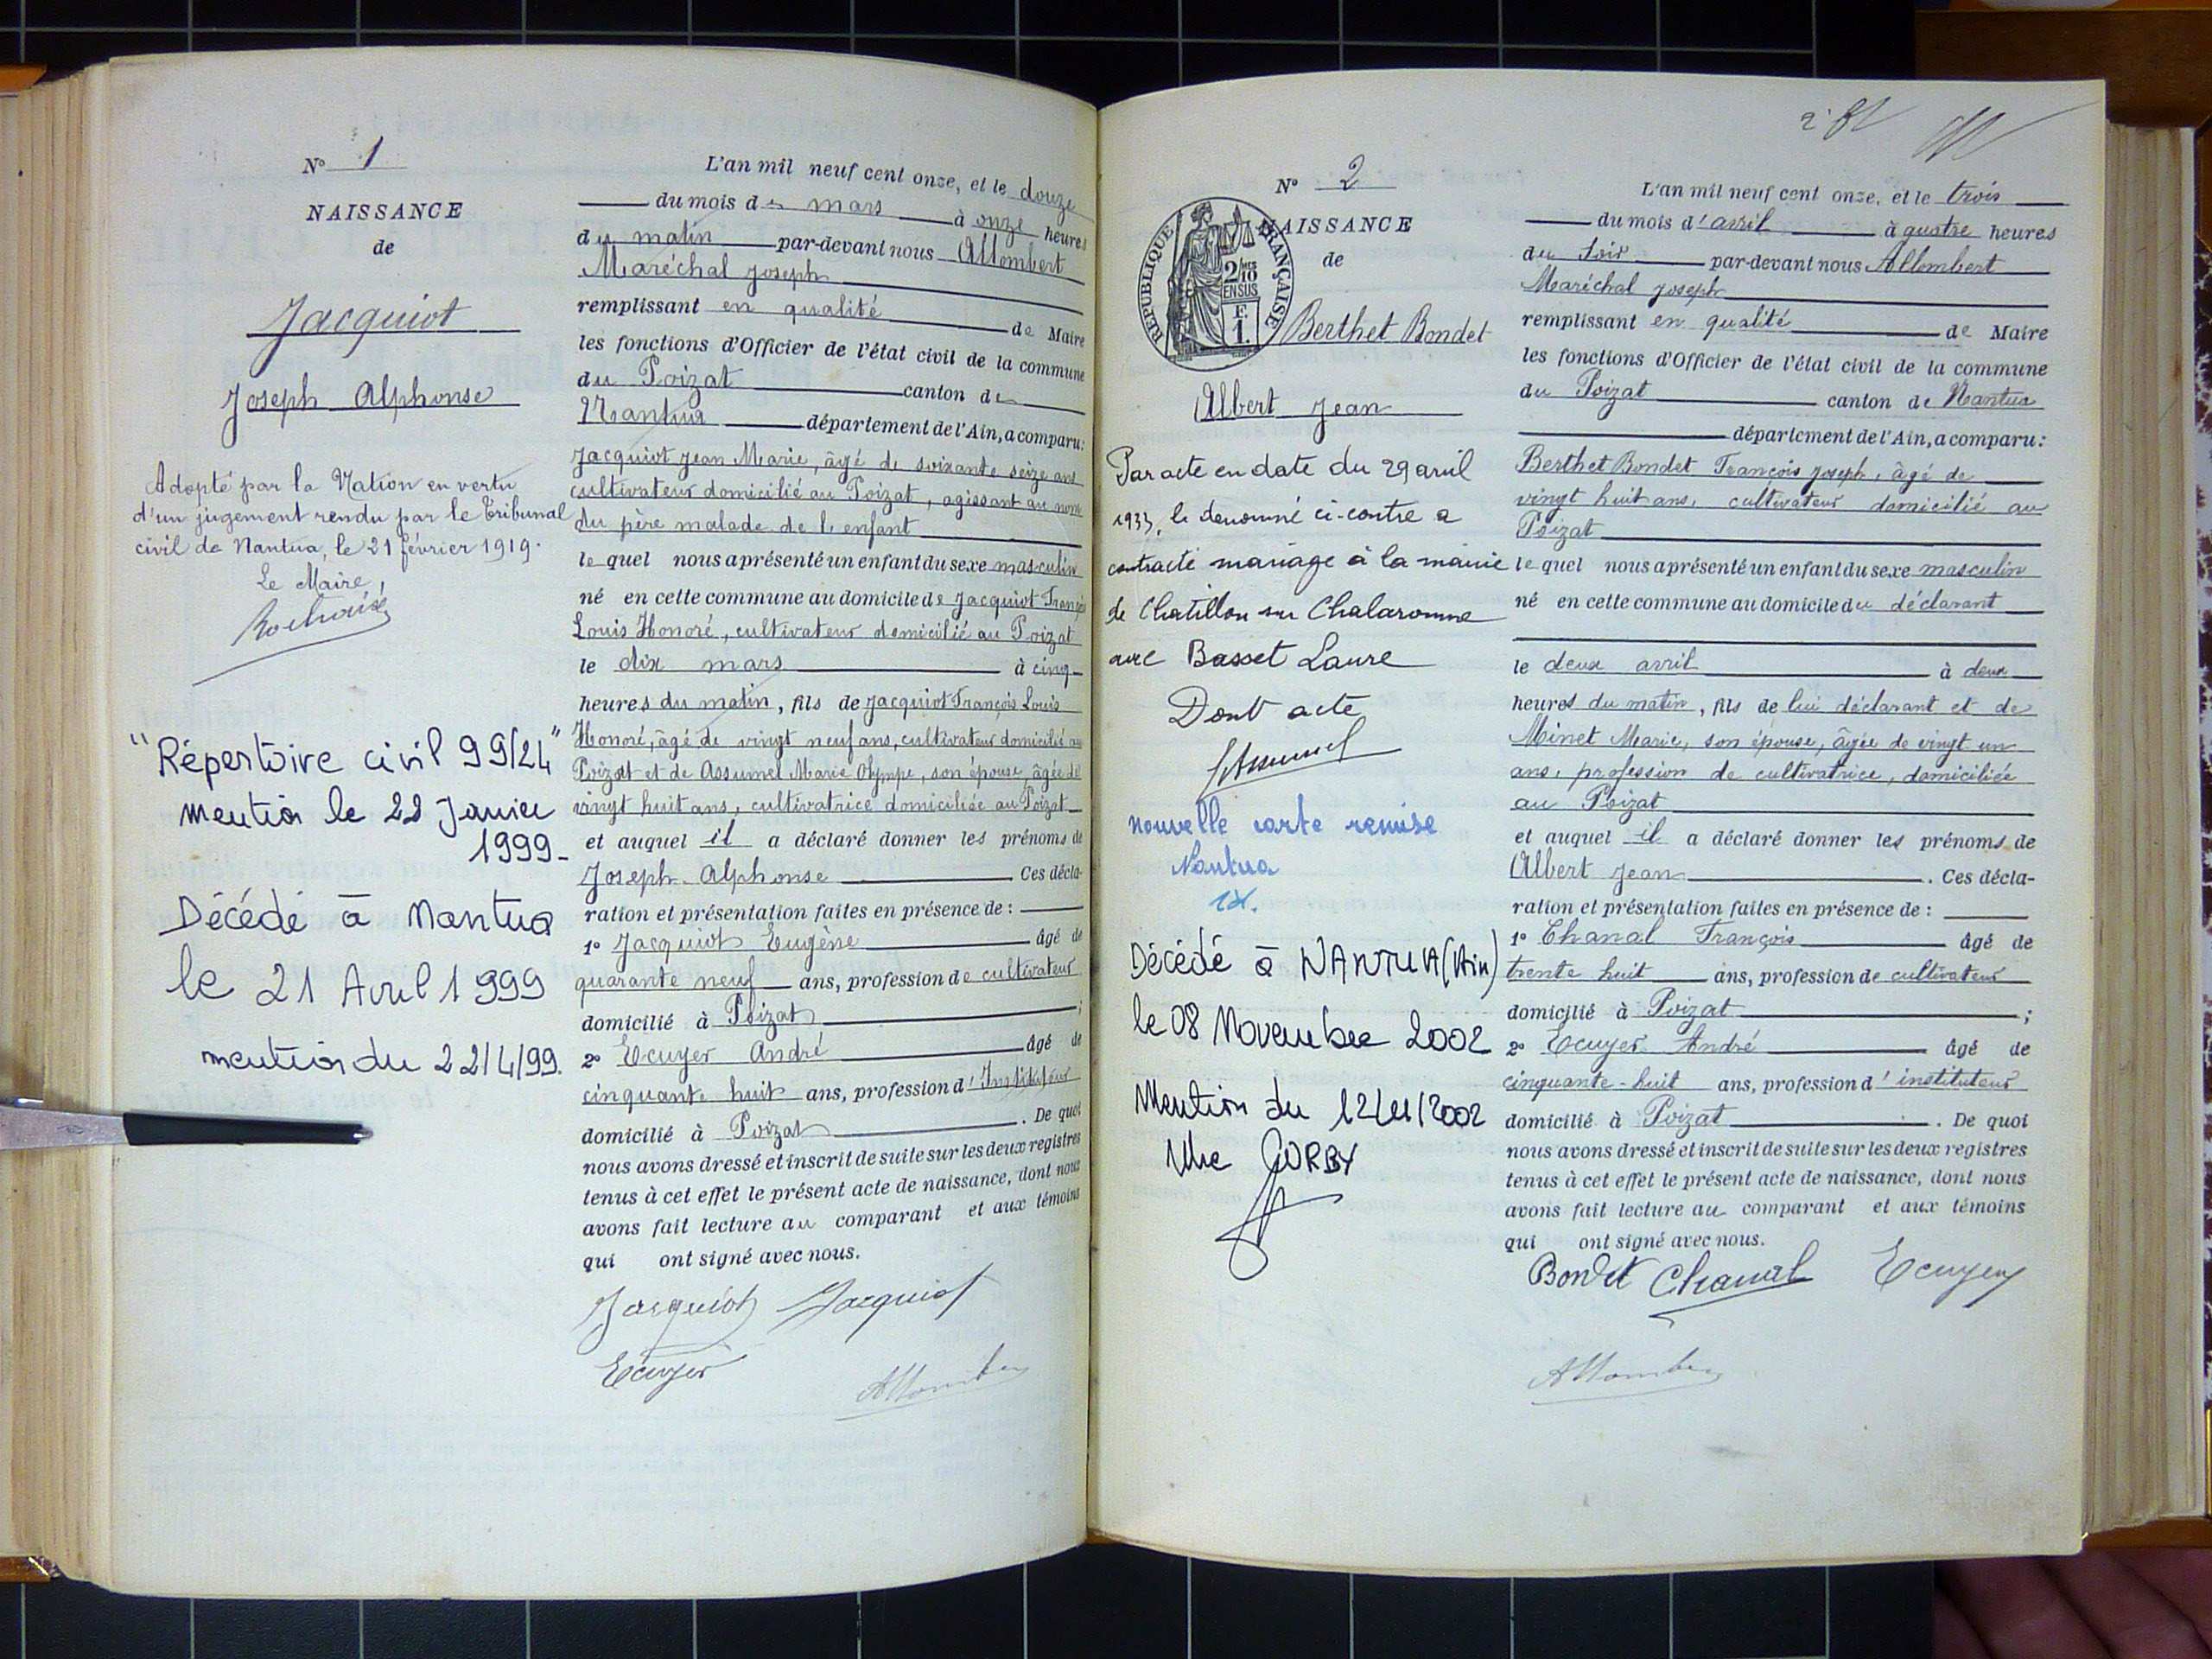 N° 1
NAISSANCE
de
Jacquiot
Joseph Alphonse
Adopté par la Nation en vertu
d'un jugement rendu par le Tribunal
civil de Nantua, le 21 février 1919.
Le Maire,
"Répertoire civil 99/24"
mention le 22 Janvier
1999-
Décédé à Nantua
le 21 Avril 1999
mention du 22/4/99.
L'an mil neuf cent onze, et le douze
du mois de mars à onze heures
du matin par-devant nous Allombert
Maréchal Joseph
remplissant en qualité de Maire
les fonctions d'Officier de l'état civil de la commune
du Poizat canton de
Nantua département de l'Ain, a comparu:
Jacquiot Jean Marie, âgé de soixante seize ans
cultivateur domicilié au Poizat, agissant au nom
du père malade de l'enfant
lequel nous a présenté un enfant du sexe masculin
né en cette commune au domicile de Jacquiot François
Louis Honoré, cultivateur domicilié au Poizat
le dix mars à cinq
heures du matin, fils de Jacquiot François Louis
Honoré, âgé de vingt neuf ans, cultivateur domicilié au
Poizat et de Assumel Marie Olympe, son épouse, âgée de
vingt huit ans, cultivatrice domiciliée au Poizat
et auquel il a déclaré donner les prénoms de
Joseph Alphonse. Ces décla-
ration et présentation faites en présence de :
1° Jacquiot Eugène âgé de
quarante neuf ans, profession de cultivateur
domicilié à Poizat ;
2° Ecuyer André âgé de
cinquante huit ans, profession d'Instituteur
domicilié à Poizat. De quoi
nous avons dressé et inscrit de suite sur les deux registres
tenus à cet effet le présent acte de naissance, dont nous
avons fait lecture au comparant et aux témoins
qui ont signé avec nous.
Jacquiot Jacquiot
Ecuyer Allombert
N° 2
NAISSANCE
de
RÉPUBLIQUE FRANÇAISE
2/10
EN SUS
F.
1.
Berthet Bondet
Albert Jean
Par acte en date du 29 avril
1933, le dénommé ci-contre a
contracté mariage à la mairie
de Chatillon sur Chalaronne
avec Basset Laure
Dont acte
nouvelle carte remise
Nantua
Décédé à NANTUA (Ain)
le 08 Novembre 2002
Mention du 12/11/2002
Mme GORBY
L'an mil neuf cent onze, et le trois
du mois d'avril à quatre heures
du soir par-devant nous Allombert
Maréchal Joseph
remplissant en qualité de Maire
les fonctions d'Officier de l'état civil de la commune
du Poizat canton de Nantua
département de l'Ain, a comparu:
Berthet Bondet François Joseph, âgé de
vingt huit ans, cultivateur domicilié au
Poizat
lequel nous a présenté un enfant du sexe masculin
né en cette commune au domicile du déclarant
le deux avril à deux
heures du matin, fils de lui déclarant et de
Minet Marie, son épouse, âgée de vingt un
ans, profession de cultivatrice, domiciliée
au Poizat
et auquel il a déclaré donner les prénoms de
Albert Jean. Ces décla-
ration et présentation faites en présence de :
1° Chanal François âgé de
trente huit ans, profession de cultivateur
domicilié à Poizat ;
2° Ecuyer André âgé de
cinquante-huit ans, profession d'instituteur
domicilié à Poizat. De quoi
nous avons dressé et inscrit de suite sur les deux registres
tenus à cet effet le présent acte de naissance, dont nous
avons fait lecture au comparant et aux témoins
qui ont signé avec nous.
Bondet Chanal Ecuyer
Allombert